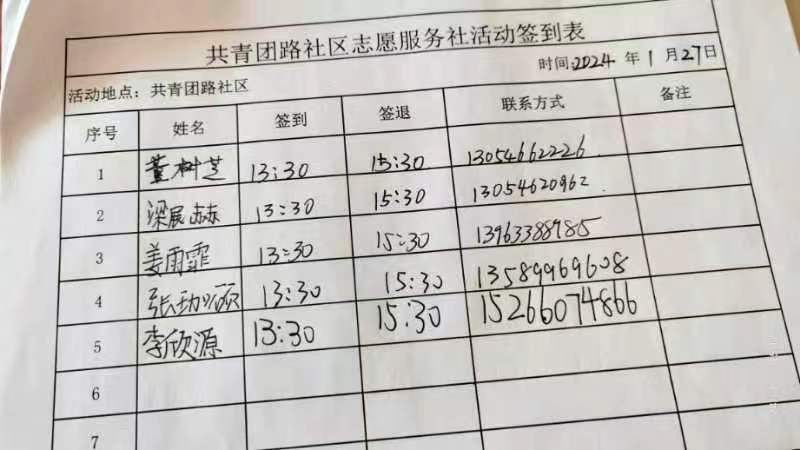 共青团路社区志愿服务社活动签到表
时间:2024 年 1 月 27日
活动地点：共青团路社区
序号 姓名 签到 签退 联系方式 备注
1 董树芝 13:30 15:30 13054662226
2 梁展赫 13:30 15:30 13054620962
3 姜雨霏 13:30 15:30 13963388985
4 张 13:30 15:30 13589969608
5 李欣源 13:30 15:30 15266074866
6
7